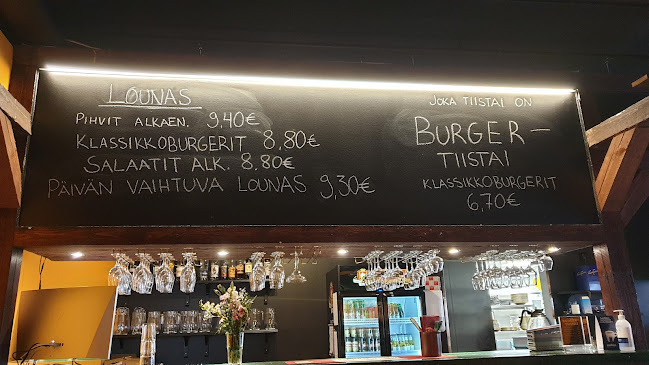 LOUNAS
PIHVIT ALKAEN. 9,40€
KLASSIKKOBURGERIT 8,80€
SALAATIT ALK. 8,80€
PÄIVÄN VAIHTUVA LOUNAS 9,30€
JOKA TIISTAI ON
BURGER-
TIISTAI
KLASSIKKOBURGERIT
6,70€